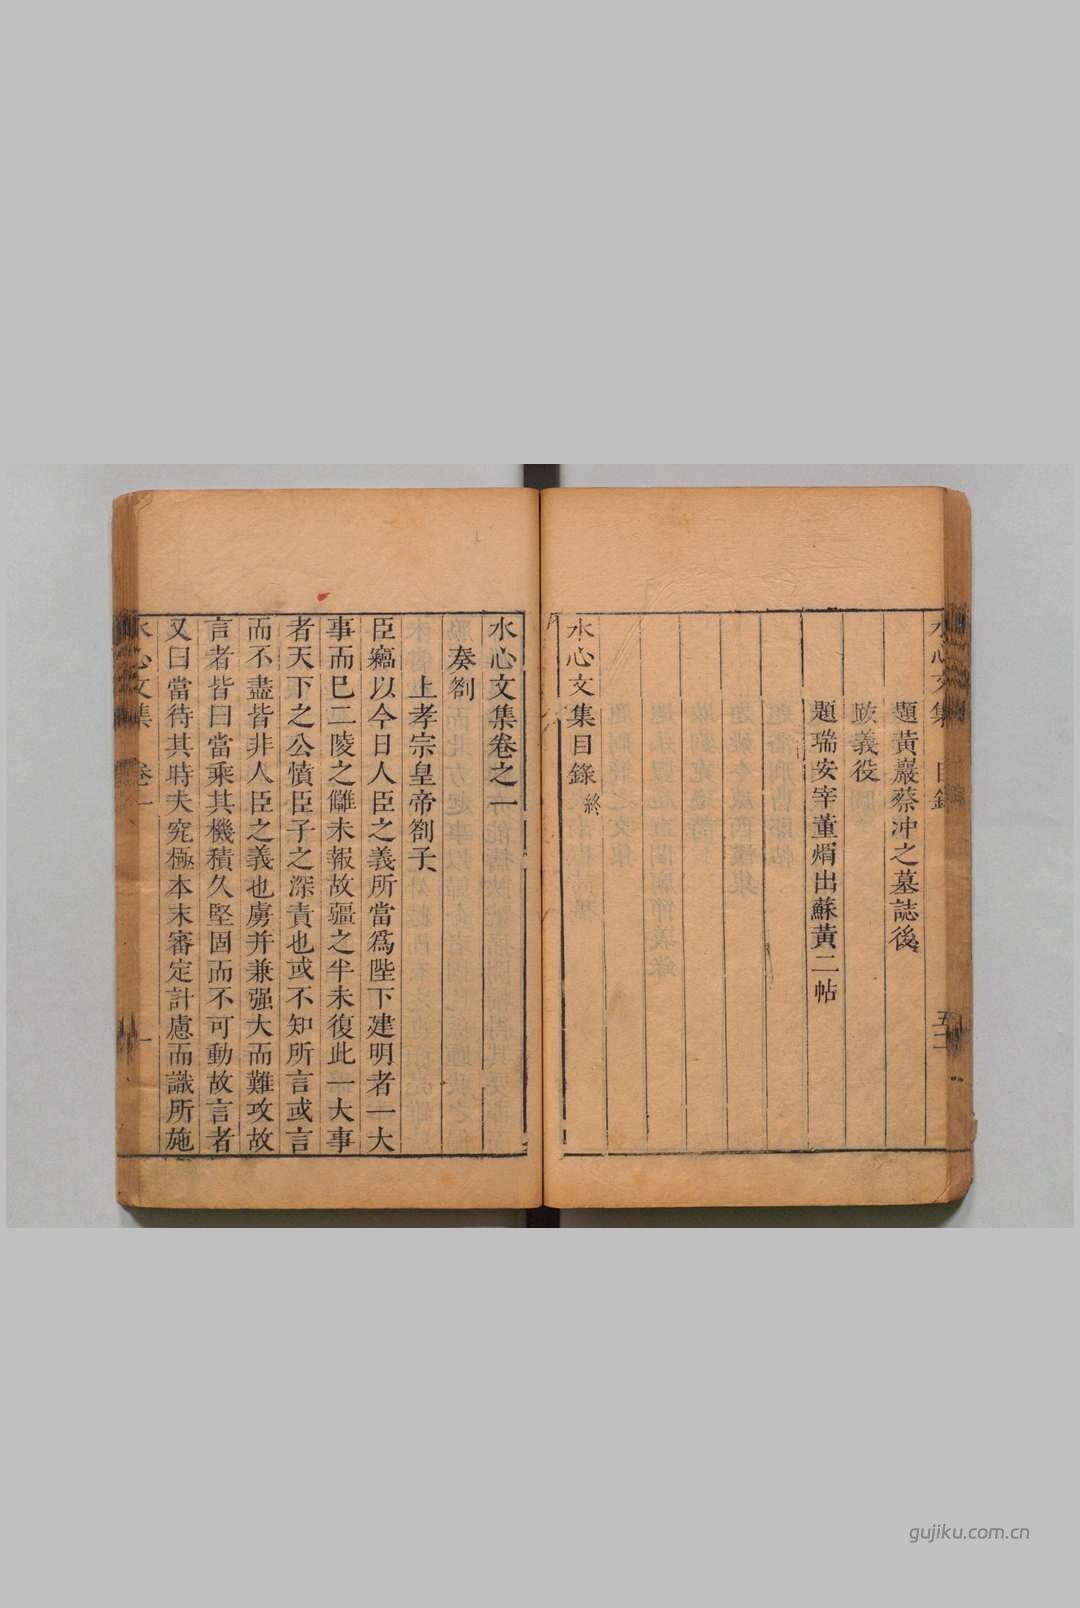 水心文集 目錄
五二
題黃巖蔡冲之墓誌後
跋義役
題瑞安宰董煟出蘇黃二帖
水心文集目錄終
水心文集卷之一
奏劄
上孝宗皇帝劄子
臣竊以今日人臣之義所當爲陛下建明者一大
事而已二陵之讎未報故疆之半未復此一大事
者天下之公憤臣子之深責也或不知所言或言
而不盡皆非人臣之義也虜并兼强大而難攻故
言者皆曰當乘其機積久堅固而不可動故言者
又曰當待其時夫究極本末審定計慮而識所施
水心文集 卷一
一
gujiku.com.cn